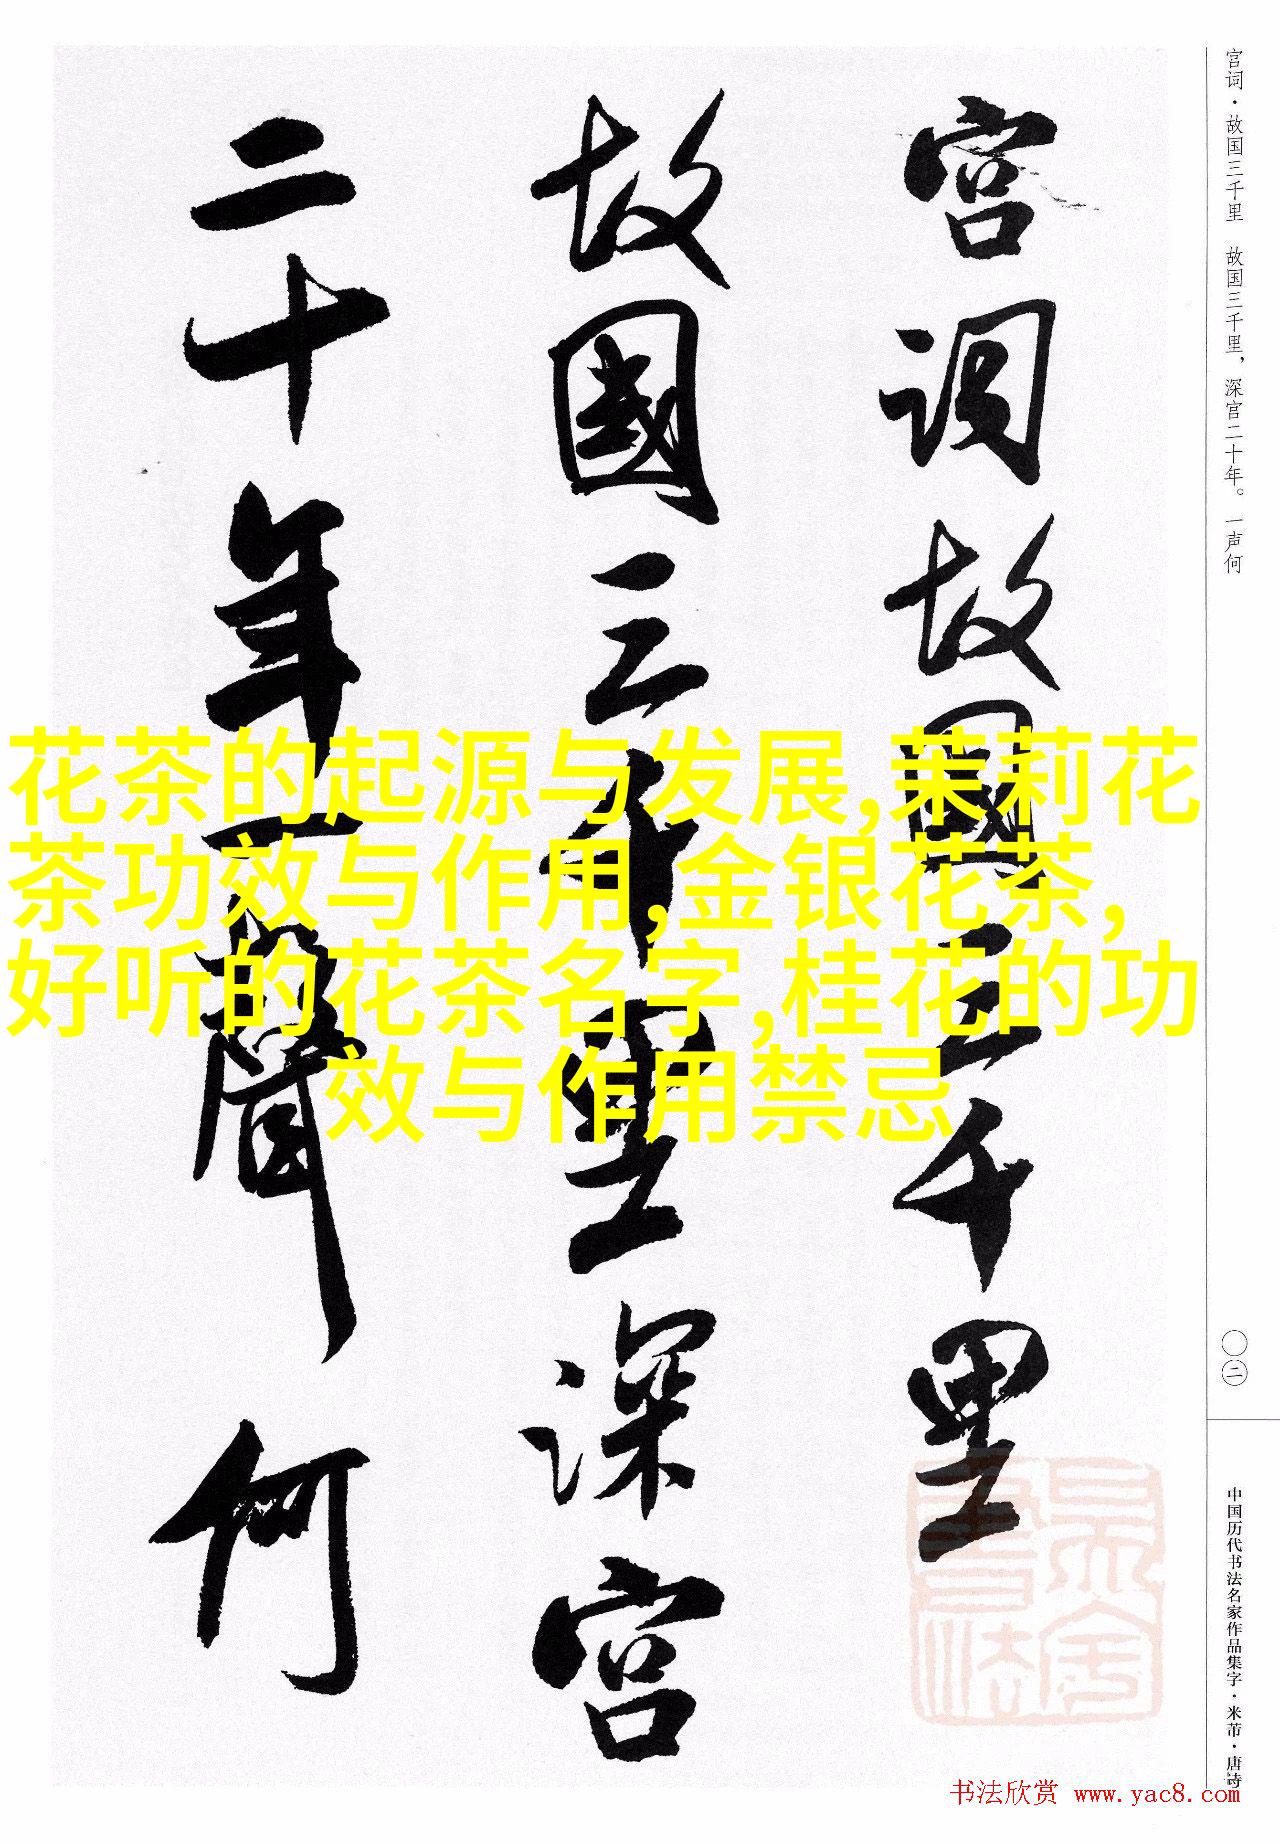 宫词·故国三千里 故国三千里，深宫二十年。一声何
宫词故國三千里
故國三千里深宫
二十年一聲何
花茶的起源与发展,茉莉花
茶功效与作用,金银花茶,
好听的花茶名字,桂花的功
效与作用禁忌
〇二
中国历代书法名家作品集字·米芾·唐诗
书法欣赏 www.yac8.com